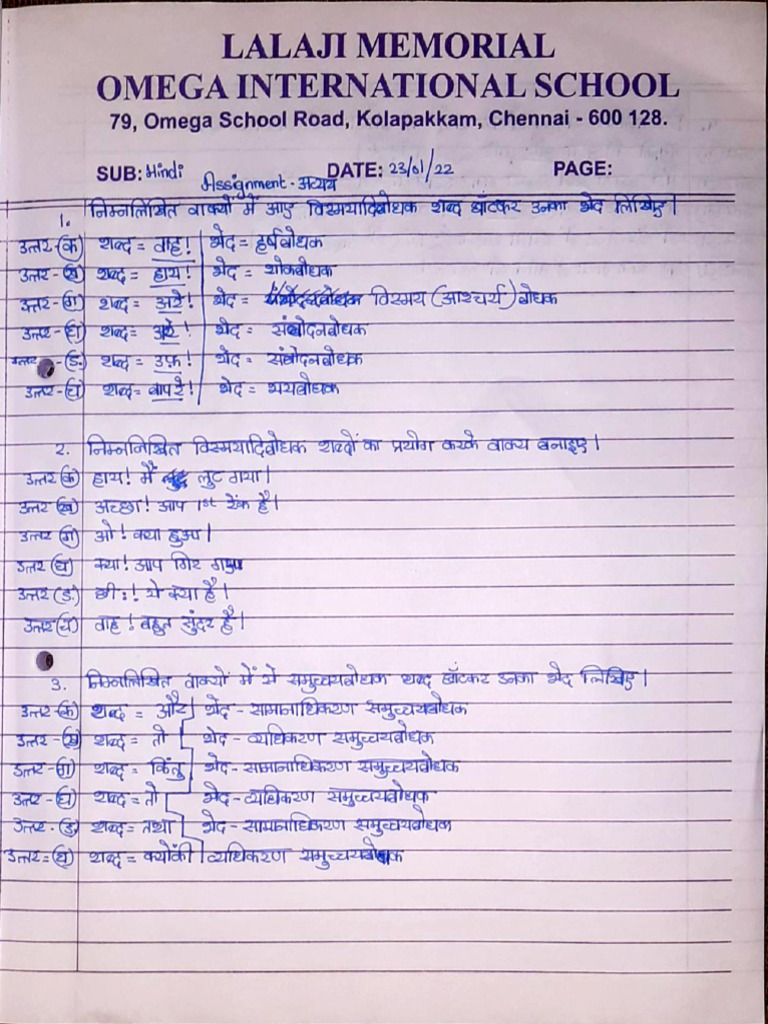 LALAJI MEMORIAL
OMEGA INTERNATIONAL SCHOOL
79, Omega School Road, Kolapakkam, Chennai - 600 128.
SUB: Hindi DATE: 23/01/22 PAGE:
Assignment - अव्यय
1. निम्नलिखित वाक्यों में आए विस्मयादिबोधक शब्द छाँटकर उनका भेद लिखिए।
उत्तर-(क) शब्द = वाह! भेद = हर्षबोधक
उत्तर-(ख) शब्द = हाय! भेद = शोकबोधक
उत्तर-(ग) शब्द = अरे! भेद = विस्मय (आश्चर्य) बोधक
उत्तर-(घ) शब्द = अरे! भेद = संबोदनबोधक
उत्तर-(ङ) शब्द = उफ़! भेद = संबोदनबोधक
उत्तर-(च) शब्द = बापरे! भेद = भयबोधक
2. निम्ननिखित विस्मयादिबोधक शब्दों का प्रयोग करके वाक्य बनाइए।
उत्तर (क) हाय! मैं लुट गया।
उत्तर (ख) अच्छा! आप 1st रेंक है।
उत्तर (ग) ओ! क्या हुआ।
उत्तर (घ) क्या! आप गिर
उत्तर (ङ) छी:! ये क्या है।
उत्तर (च) वाह! बहुत सुंदर है।
3. निम्नलिखित वाक्यों में से समुच्चयबोधक शब्द छाँटकर उनका भेद लिखिए।
उत्तर-(क) शब्द = और भेद - सामानाधिकरण समुच्चयबोधक
उत्तर-(ख) शब्द = तो भेद - व्यधिकरण समुच्चयबोधक
उत्तर-(ग) शब्द = किंतु भेद - सामानाधिकरण समुच्चयबोधक
उत्तर-(घ) शब्द = तो भेद - व्यधिकरण समुच्चयबोधक
उत्तर-(ङ) शब्द = तथा भेद - सामानाधिकरण समुच्चयबोधक
उत्तर = (च) शब्द = क्योंकी व्यधिकरण समुच्चयबोधक